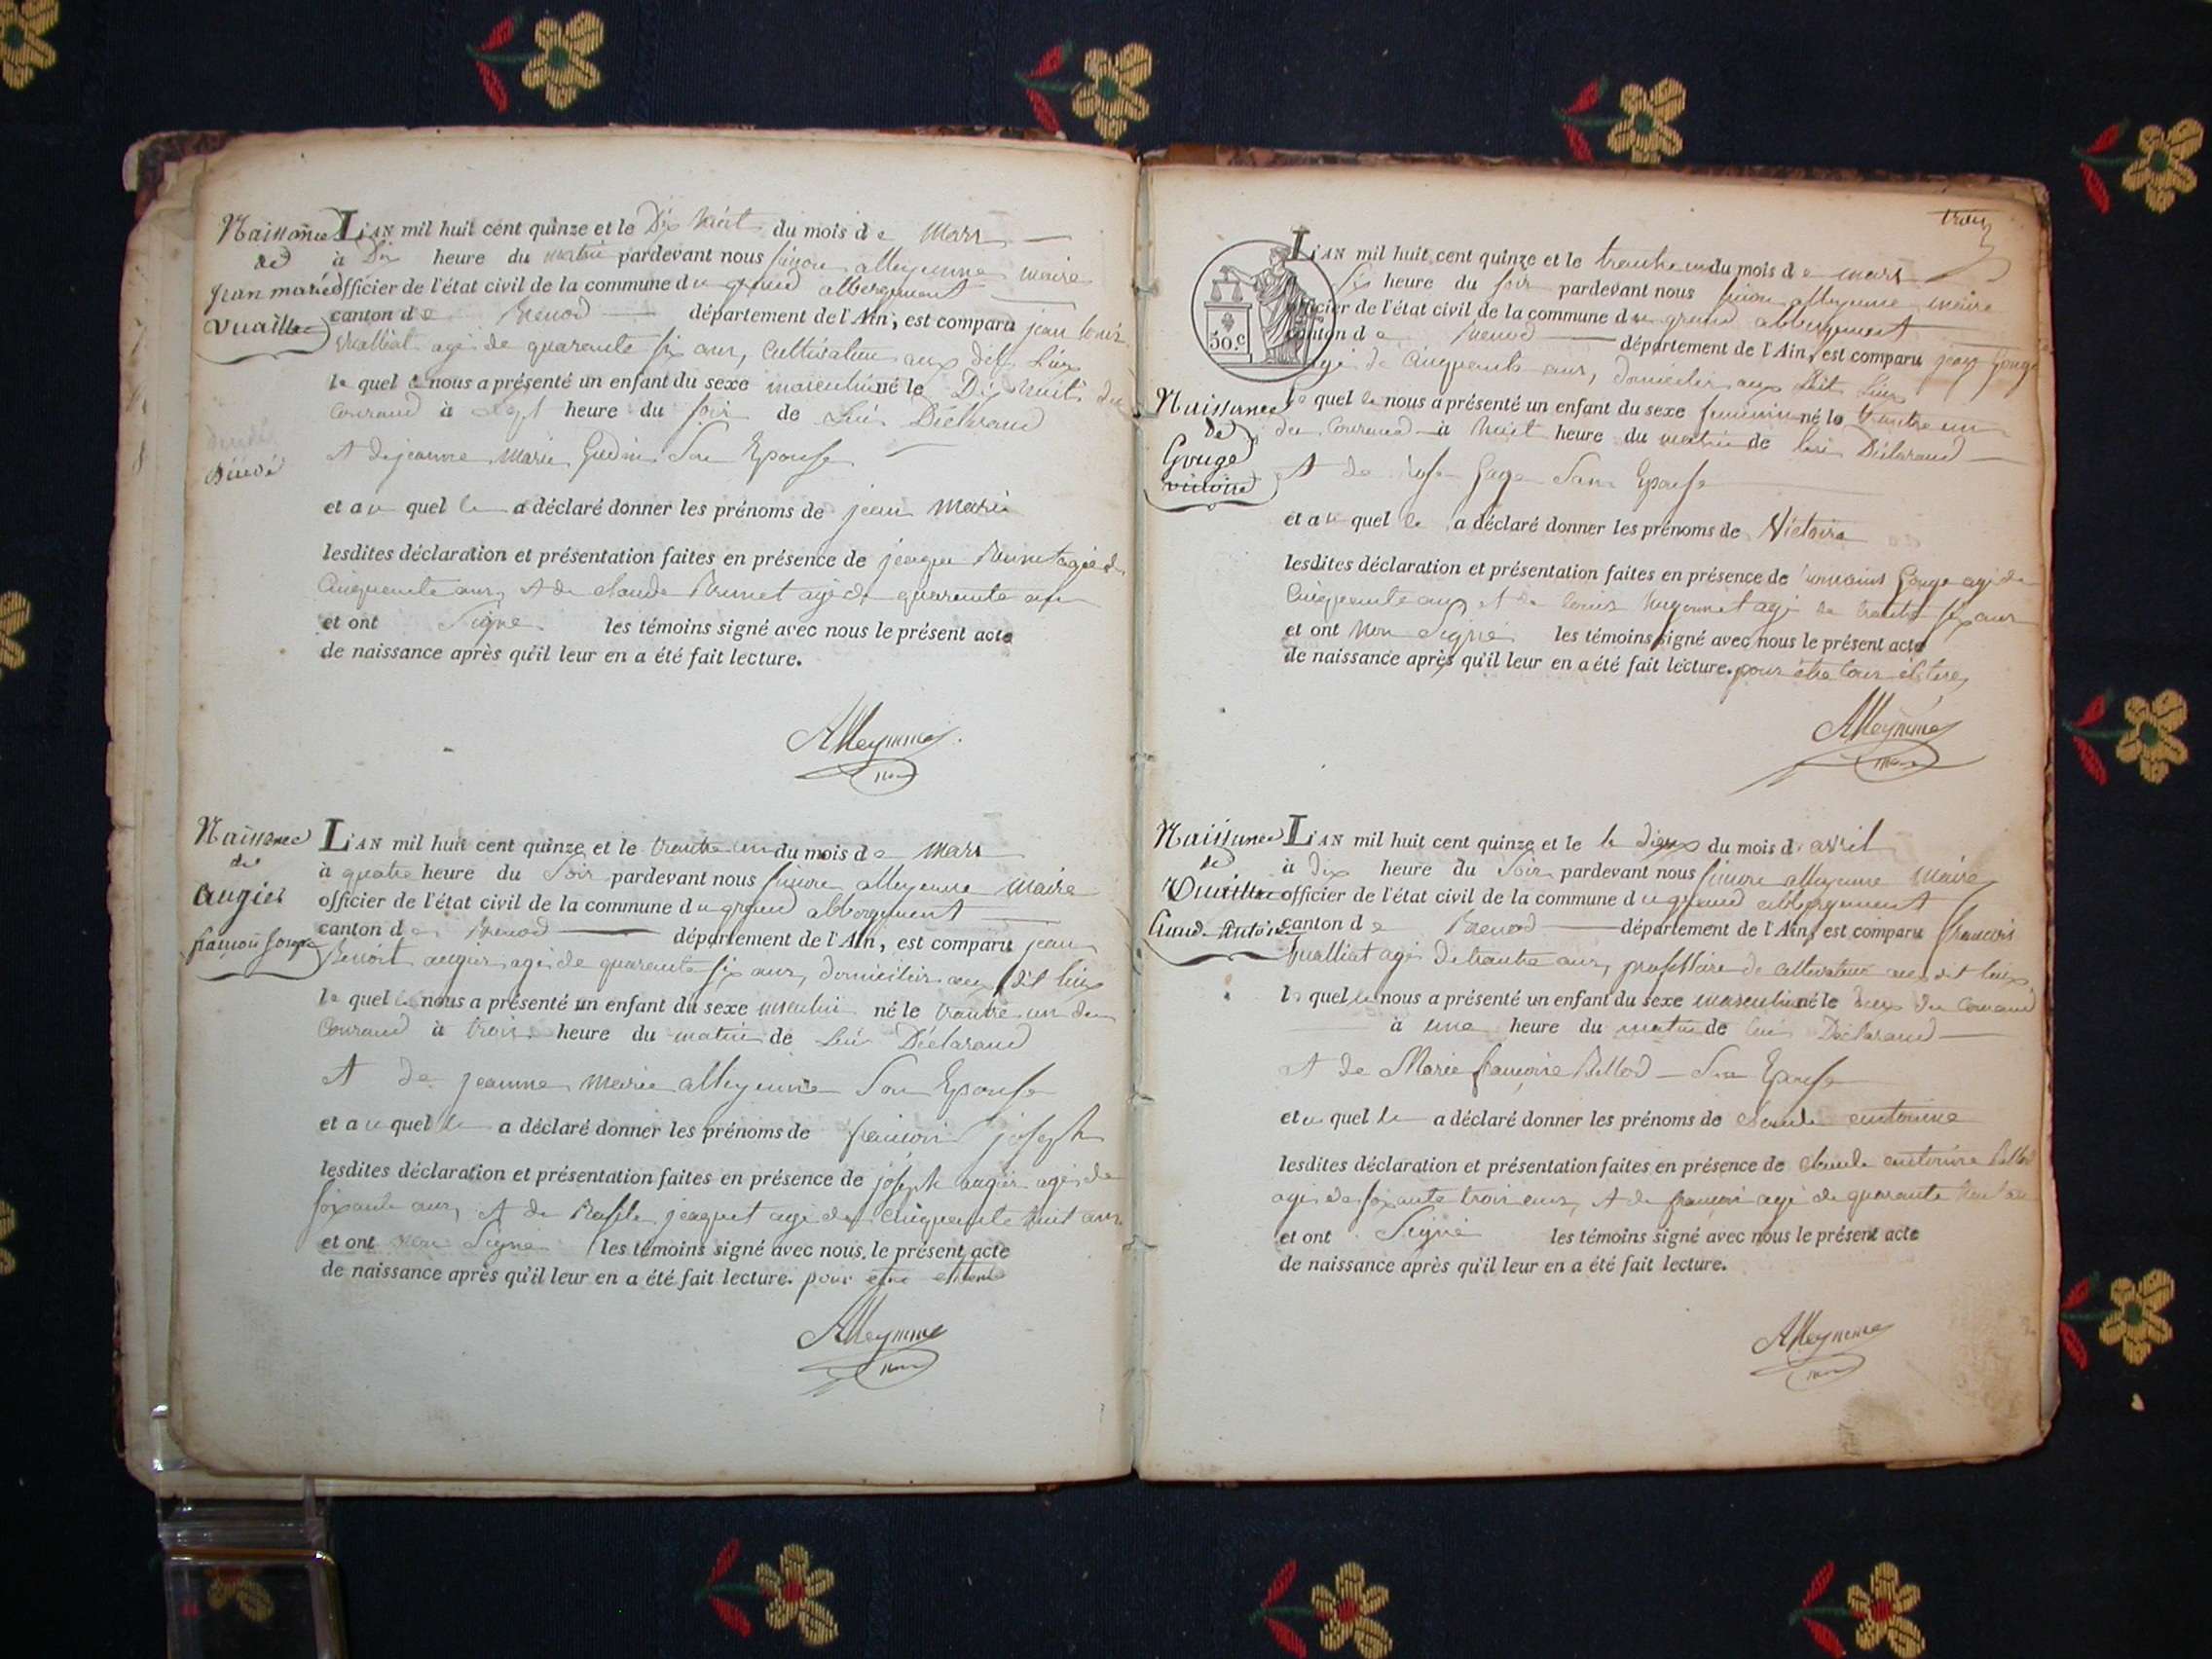 Naissance
de
jean marie
vuaillat
L'AN mil huit cent quinze et le Dix huit du mois de Mars
à Dix heure du matin pardevant nous simon alleymme maire
officier de l'état civil de la commune du grand abbergement
canton de Brenod département de l'Ain, est comparu jean louis
vuaillat agé de quarante six ans, Cultivateur aux dit Lieu
le quel nous a présenté un enfant du sexe masculin né le Dix huit du
Courand à sept heure du soir de Lui Déclarand
et de jeanne Marie Gudin Son Epouse
et au quel le a déclaré donner les prénoms de jean Marie
lesdites déclaration et présentation faites en présence de jacque Brunet agé de
Cinquente ans, et de claude Brunet agé de quarente ans
et ont Signé les témoins signé avec nous le présent acte
de naissance après qu'il leur en a été fait lecture.
Alleymme
Naissance
de
augier
françois joseph
L'AN mil huit cent quinze et le trante un du mois de Mars
à quatre heure du Soir pardevant nous simon alleymme Maire
officier de l'état civil de la commune du grand abbergement
canton de Brenod département de l'Ain, est comparu jean
Benoit augier agé de quarante six ans, domicilié aux dit lieu
le quel nous a présenté un enfant du sexe masculin né le trante un du
Courand à trois heure du matin de Lui Déclarand
et de jeanne Marie alleymme Son Epouse
et au quel le a déclaré donner les prénoms de françois joseph
lesdites déclaration et présentation faites en présence de joseph augier agé de
soixante ans, et de jacquet agé de Cinquente huit ans
et ont non Signé les témoins signé avec nous le présent acte
de naissance après qu'il leur en a été fait lecture. pour etre
Alleymme
trois
50.c
Naissance
de
Gouge
victoire
L'AN mil huit cent quinze et le trante un du mois de mars
Six heure du soir pardevant nous simon alleymme maire
officier de l'état civil de la commune du grand abbergement
canton de Brenod département de l'Ain, est comparu jean Gouge
agé de Cinquente ans, domicilié aux dit Lieu
le quel nous a présenté un enfant du sexe feminin né le trantre un
du Courand à huit heure du matin de lui Déclarand
et de rose Son Epouse
et au quel le a déclaré donner les prénoms de Victoire
lesdites déclaration et présentation faites en présence de romains Gouge agé de
Cinquente ans et de louis hugonnet agé de trante six ans
et ont non Signé les témoins signé avec nous le présent acte
de naissance après qu'il leur en a été fait lecture. pour être tous
Alleymme
Naissance
de
Vuaillat
Claude Antoine
L'AN mil huit cent quinze et le le deux du mois d'avril
à dix heure du Soir pardevant nous simon alleymme Maire
officier de l'état civil de la commune du grand abbergement
canton de Brenod département de l'Ain, est comparu francois
Vualliat agé de trante ans, de cultivateur aux dit lieu
le quel nous a présenté un enfant du sexe masculin né le deux du Courand
à une heure du matin de lui Déclarand
et de Marie françoise Billod Son Epouse
et au quel le a déclaré donner les prénoms de claude antoinne
lesdites déclaration et présentation faites en présence de claude antoinne billod
agé de soixante trois ans, et de françois agé de quarante
et ont Signé les témoins signé avec nous le présent acte
de naissance après qu'il leur en a été fait lecture.
Alleymme